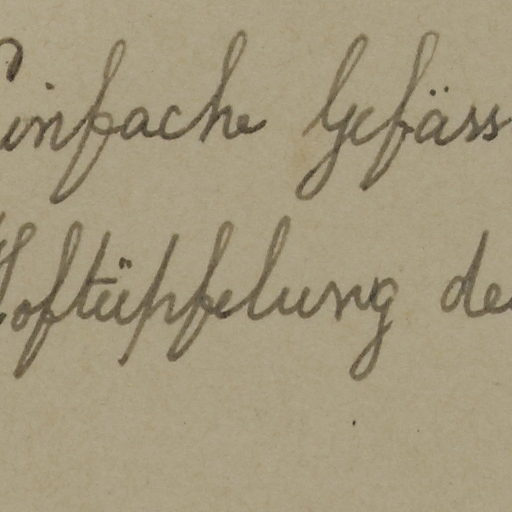 Einfache Gefäss
Hoftüpfelung de